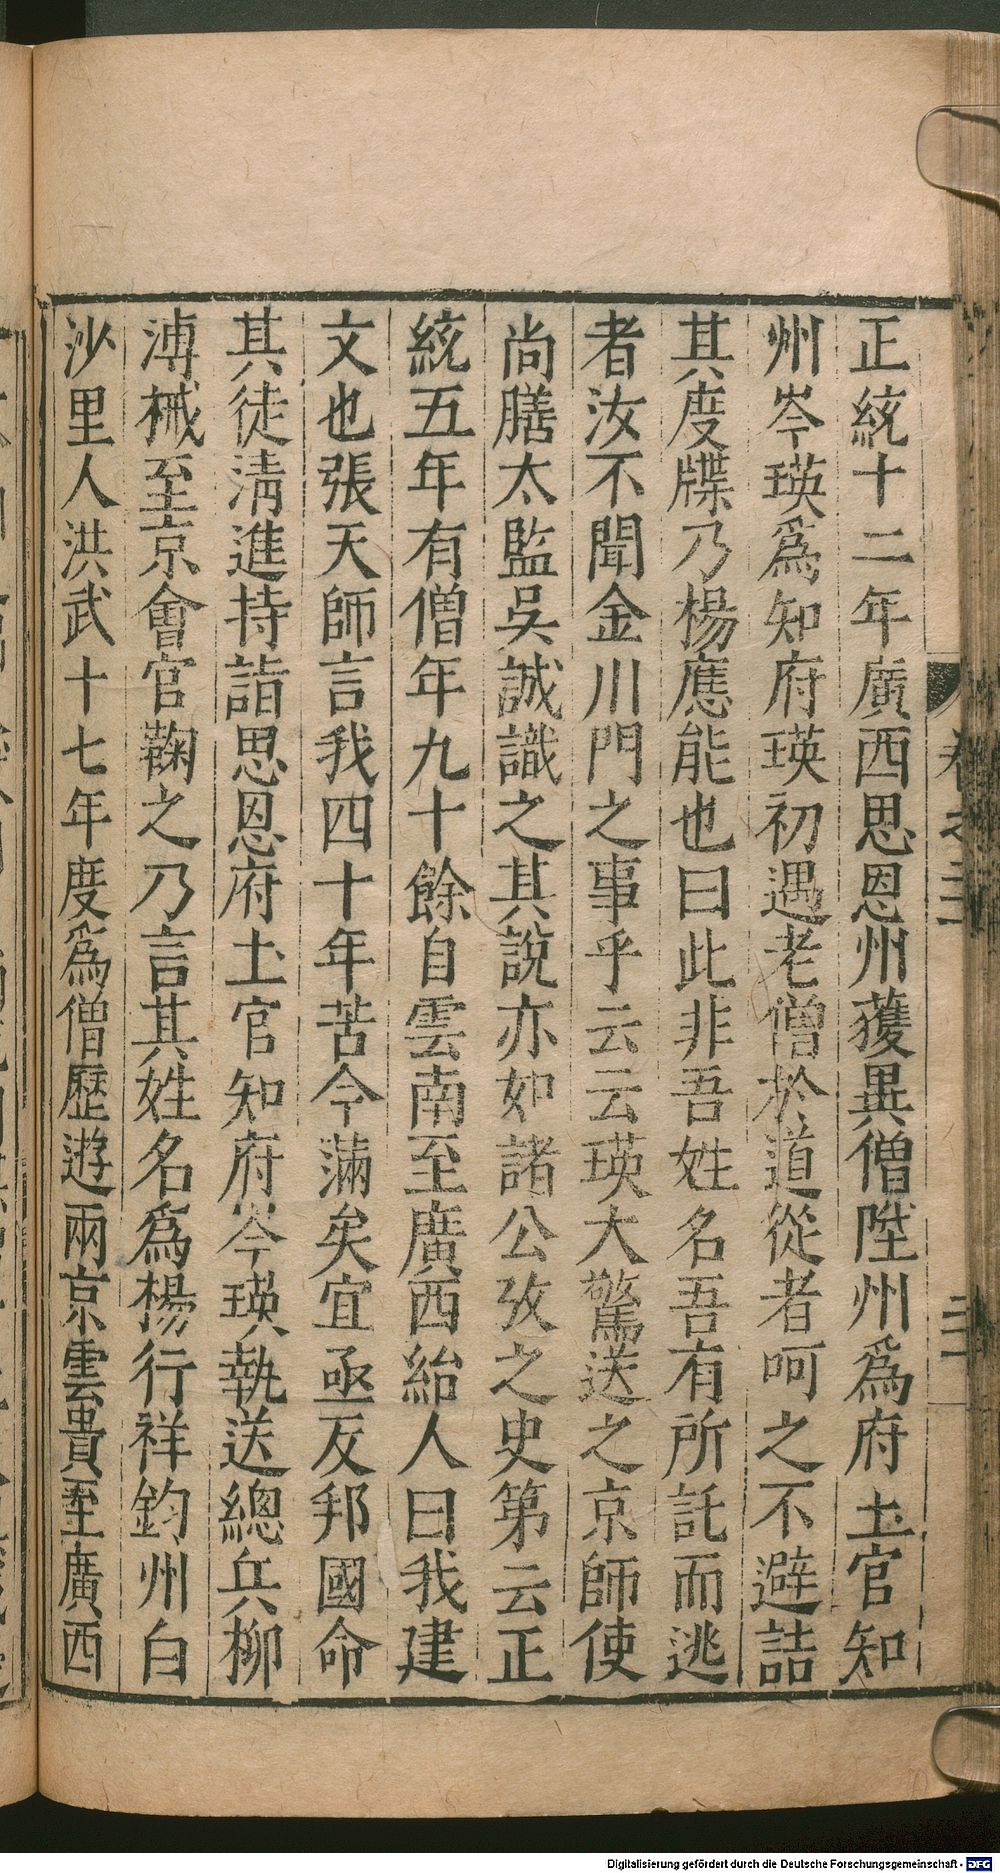 正統十二年廣西思恩州獲異僧陞州爲府土官知
州岑瑛爲知府瑛初遇老僧於道從者呵之不避詰
其度牒乃楊應能也曰此非吾姓名吾有所託而逃
者汝不聞金川門之事乎云云瑛大驚送之京師使
尚膳太監吳誠識之其說亦如諸公攷之史第云正
統五年有僧年九十餘自雲南至廣西紿人曰我建
文也張天師言我四十年苦今滿矣宜亟反邦國命
其徒淸進持詣思恩府土官知府岑瑛執送總兵柳
溥械至京會官鞫之乃言其姓名爲楊行祥鈞州白
沙里人洪武十七年度爲僧歷遊兩京雲貴至廣西
卷之三
Digitalisierung gefördert durch die Deutsche Forschungsgemeinschaft - DFG